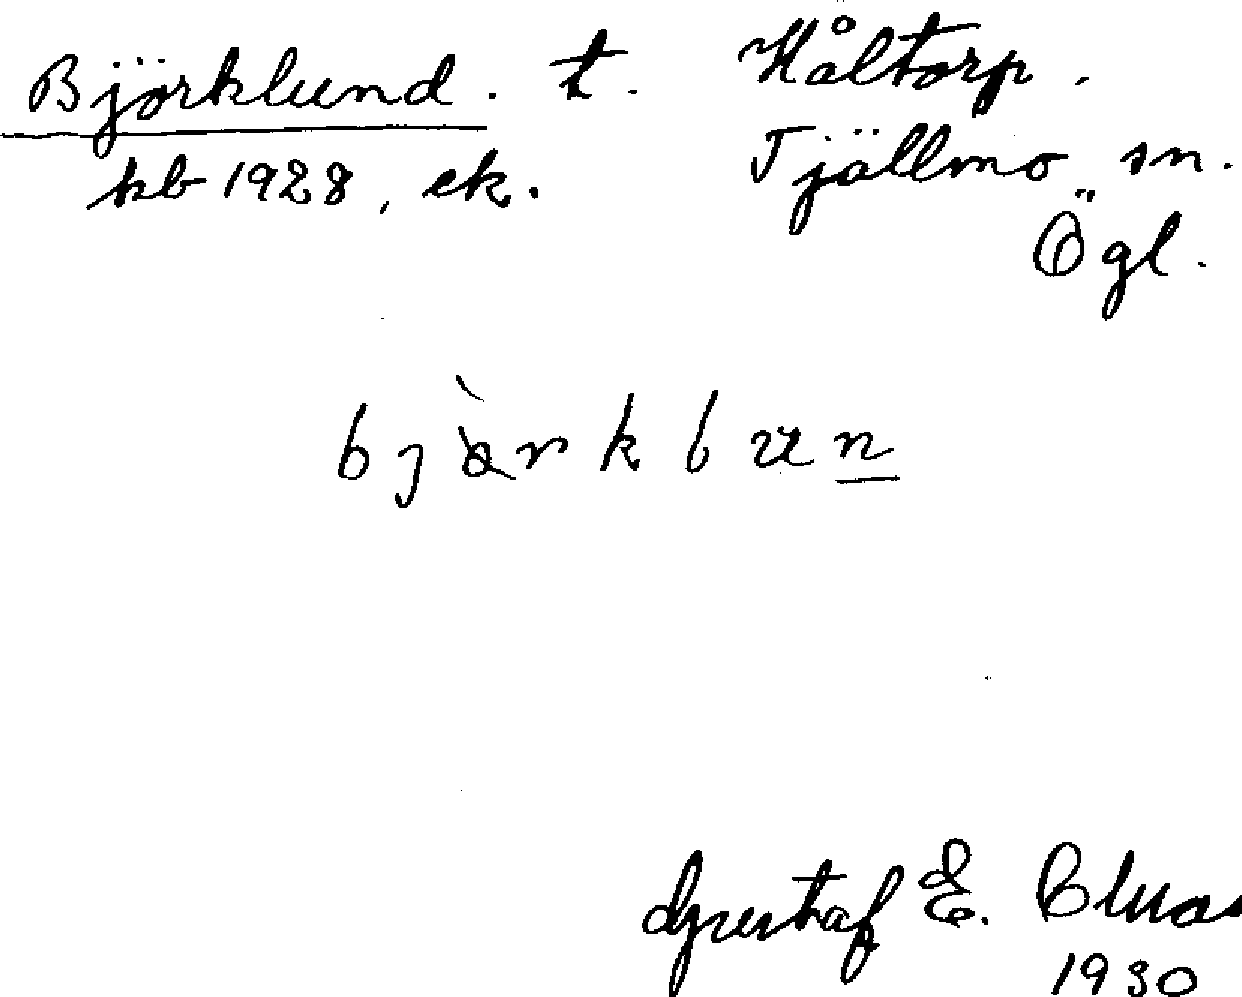 Björklund. t. Håltorp.
kb 1928, ek. Tjällmo sn.
Ögl.
Gustaf E. Cluas
1930